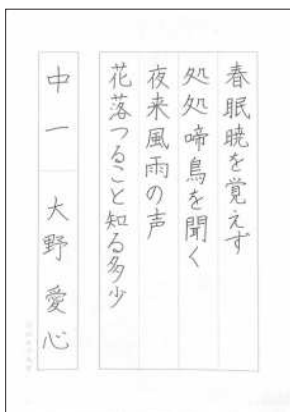 春眠暁を覚えず
処処啼鳥を聞く
夜来風雨の声
花落つること知る多少
中一 大野愛心